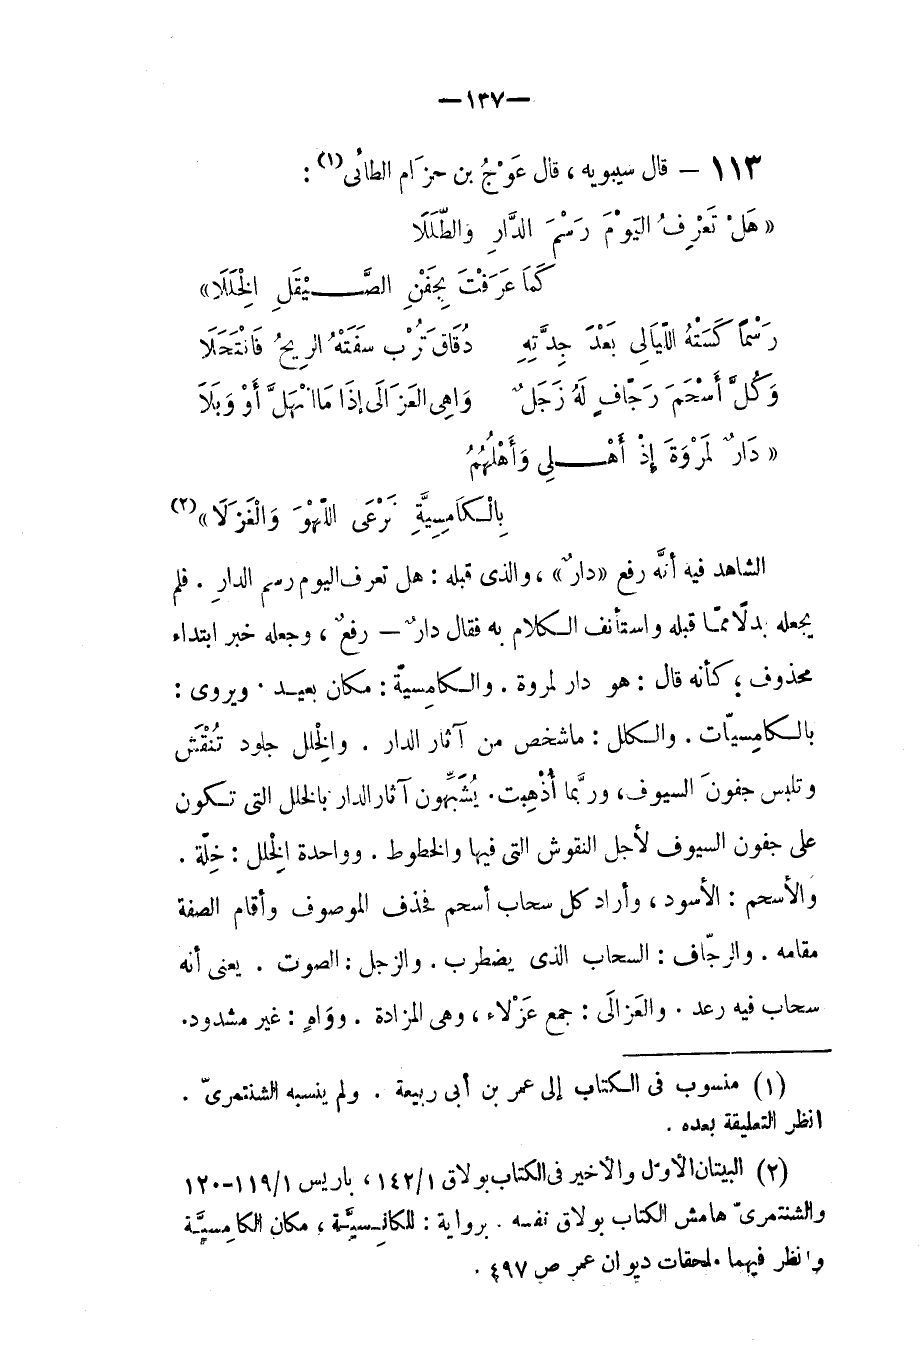 —١٣٧—
١١٣ – قال سيبويه ، قال عَوْجُ بن حزَام الطائى(١) :
« هَلْ تَعْرِفُ اليَوْمَ رَسْمَ الدَّارِ وَالطَّلَلَا
كَمَا عَرَفْتَ بِجَفْنِ الصَّــيْقَلِ الخِلَلَا»
رَسْمًا كَسَتْهُ اللَّيَالِى بَعْدَ جِدَّتِهِ دُقَاقَ تُرْبٍ سَفَتْهُ الريحُ فَانْتَحَلَا
وَكُلَّ أَسْحَمَ رَجّافٍ لَهُ زَجَلٌ وَاهِى العَزَالَى إذَا مَا انْهَلَّ أَوْ وَبَلَا
« دَارٌ لمَرْوَةَ إِذْ أَهْــلِى وَأَهْلُهُمُ
بِالْـكَامِسِيَّةِ نَرْعَى اللَّهْوَ وَالْغَزَلَا»(٢)
الشاهد فيه أنَّه رفع «دارٌ» ، والذى قبله : هل تعرف اليوم رسم الدارِ . فلم
يجعله بدلًا ممّا قبله واستأنف الـكلام به فقال دارٌ – رفعٌ ، وجعله خبر ابتداء
محذوف ؛ كأنه قال : هو دار لمروة . والـكامِسيّة : مكان بعيـد . ويروى :
بالـكامِسيّات . والـكلل : ماشخص من آثار الدار . والخِلل جلود تُنْقَش
وتلبس جفونَ السيوف، وربَّما أُذْهِبت. يُشَبِّهون آثار الدار بالخلل التى تـكون
على جفون السيوف لأجل النقوش التى فيها والخطوط . وواحدة الخِلل : خِلّة .
والأسحم : الأسود ، وأراد كل سحاب أسحم فحذف الموصوف وأقام الصفة
مقامه . والرجّاف : السحاب الذى يضطرب . والزجل : الصوت . يعنى أنه
سحاب فيه رعد . والعَزالَى : جمع عَزْلاء ، وهى المزادة . ووَاهٍ : غير مشدود.
(١) منسوب فى الـكتاب إلى عمر بن أبى ربيعة . ولم ينسبه الشنتمرىّ .
انظر التعليقة بعده .
(٢) البيتان الأوّل والأخير فى الكتاب بولاق ١/١٤٢ ، باريس ١/١١٩-١٢٠
والشنتمرىّ هامش الكتاب بولاق نفسه . برواية : للكانِسيَّة ، مكان الكامِسيَّة
وانظر فيهما ملحقات ديوان عمر ص ٤٩٧ .